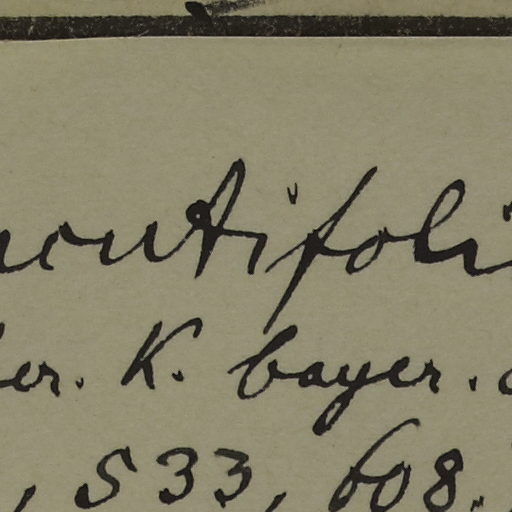 acutifoli
er. K. bayer.
, 533, 608.